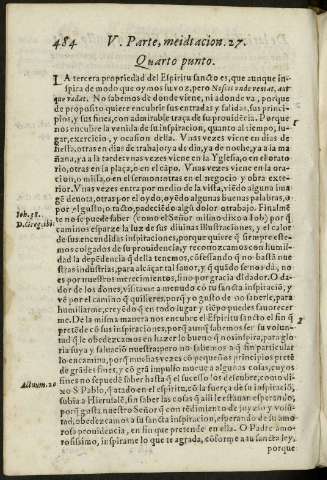 484 V. Parte, meidtacion. 27.
Quarto punto.
LA tercera propriedad del Espiritu sancto es, que aunque in-
spira de modo que oymos su voz, pero Nescis unde veniat, aut
quo vadat. No sabemos de donde viene, ni adonde va, porque
de proposito quiere encubrir sus entradas y salidas, sus princi-
pios, y sus fines, con admirable traça de su prouidẽcia. Porque
nos encubre la venida de su inspiracion, quanto al tiempo, lu-
gar, exercicio, y ocasion della. Vnas vezes viene en dias de
fiesta, otras en dias de trabajo, ya de dia, ya de noche, ya a la ma
ñana, ya a la tarde: vnas vezes viene en la Yglesia, o en el orato
rio, otras en la plaça, o en el cãpo. Vnas vezes viene en la ora-
cion, o missa, o en el sermon: otras en el negocio y obra exte-
rior. Vnas vezes entra por medio de la vista, viẽdo alguna ima
gẽ deuota, otras por el oydo, oyẽdo algunas buenas palabras, o
por el gusto, o tacto, padeciẽdo algũ dolor o trabajo. Finalmẽ
te no se puede saber (como el Señor mismo dixo a Iob) por q̃
caminos esparze la luz de sus diuinas illustraciones, y el calor
de sus encendidas inspiraciones, porque quiere q̃ siempre este-
mos colgados de su prouidencia, y reconozcamos con humil-
dad la depẽdencia q̃ della tenemos, cõfessando q̃ no bastã nue
stras industrias, para alcãçar tal fauor, y q̃ quãdo se nos dà, no
es por nuestros merecimientos, sino por gracia del dador. O da-
dor de los dones, visitame a menudo cõ tu sancta inspiraciõ, y
vẽ por el camino q̃ quisieres, porq̃ yo gusto de no saberle, para
humillarme, creyẽdo q̃ en todo lugar y tiẽpo puedes fauorecer
me. De la misma manera nos encubre el Espiritu sancto el fin q̃
pretẽde cõ sus inspiraciones, porq̃ aunq̃ sabemos ser su volun-
tad q̃ le obedezcamos en hazer lo bueno q̃ nos inspira, para glo
ria suya y saluaciõ nuestra: pero no sabemos a q̃ fin particular
lo encamina, porq̃ muchas vezes cõ pequeños principios pretẽ
de grãdes fines, y cõ grã impulso mueue a algunas cosas, cuyos
fines no se puede saber hasta q̃ el sucesso los descubre, como di-
xo S Pablo, q̃ atado en el espiritu, cõ la fuerça de su inspiraciõ,
subia a Hierusalẽ, sin saber las cosas q̃ alli le estauan esperando,
porq̃ gusta nuestro Señor q̃ con rẽdimiento de juyzio y volũ-
tad, obedezcamos a su sancta inspiracion, esperando de su amo-
rosa prouidencia, en fin que pretende en ella. O Padre amo-
rosissimo, inspirame lo que te agrada, cõforme a tu sancta ley,
porque
Ioh. 38.
D. Greg. ibi.
Actuum. 20
1
2